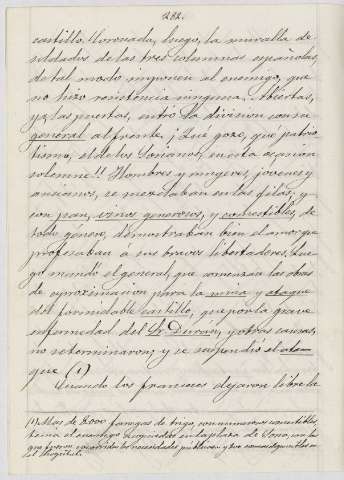 282.
castillo. Coronada, luego, la muralla de
soldados de las tres columnas españolas,
de tal modo imponen al enemigo, que
no hizo resistencia ninguna. Abiertas,
ya, las puertas, entró la division con su
general al frente. ¡Que gozo, que patrio
tismo, el de los Sorianos, en esta ocasion
solemne!! Hombres y mugeres, jovenes y
ancianos, se mezclaban en las filas, y
con pan, vinos generosos, y comestibles, de
todo género, demostraban bien el amor que
profesaban a sus bravos libertadores. Lue
go mandó el general, que comenzan las obras
de aproximacion para la mina y ataque
del formidable castillo, que por la grave
enfermedad del Sr. Duran, y otras causas,
no se terminaron, y se suspendió el ata-
que (1)
Cuando los franceses dejaron libre la
(1) Mas de 8.000 fanegas de trigo, con numerosos comestibles,
tenia el enemigo en la plaza de Soria, con las
que fueron socorridas las necesidades